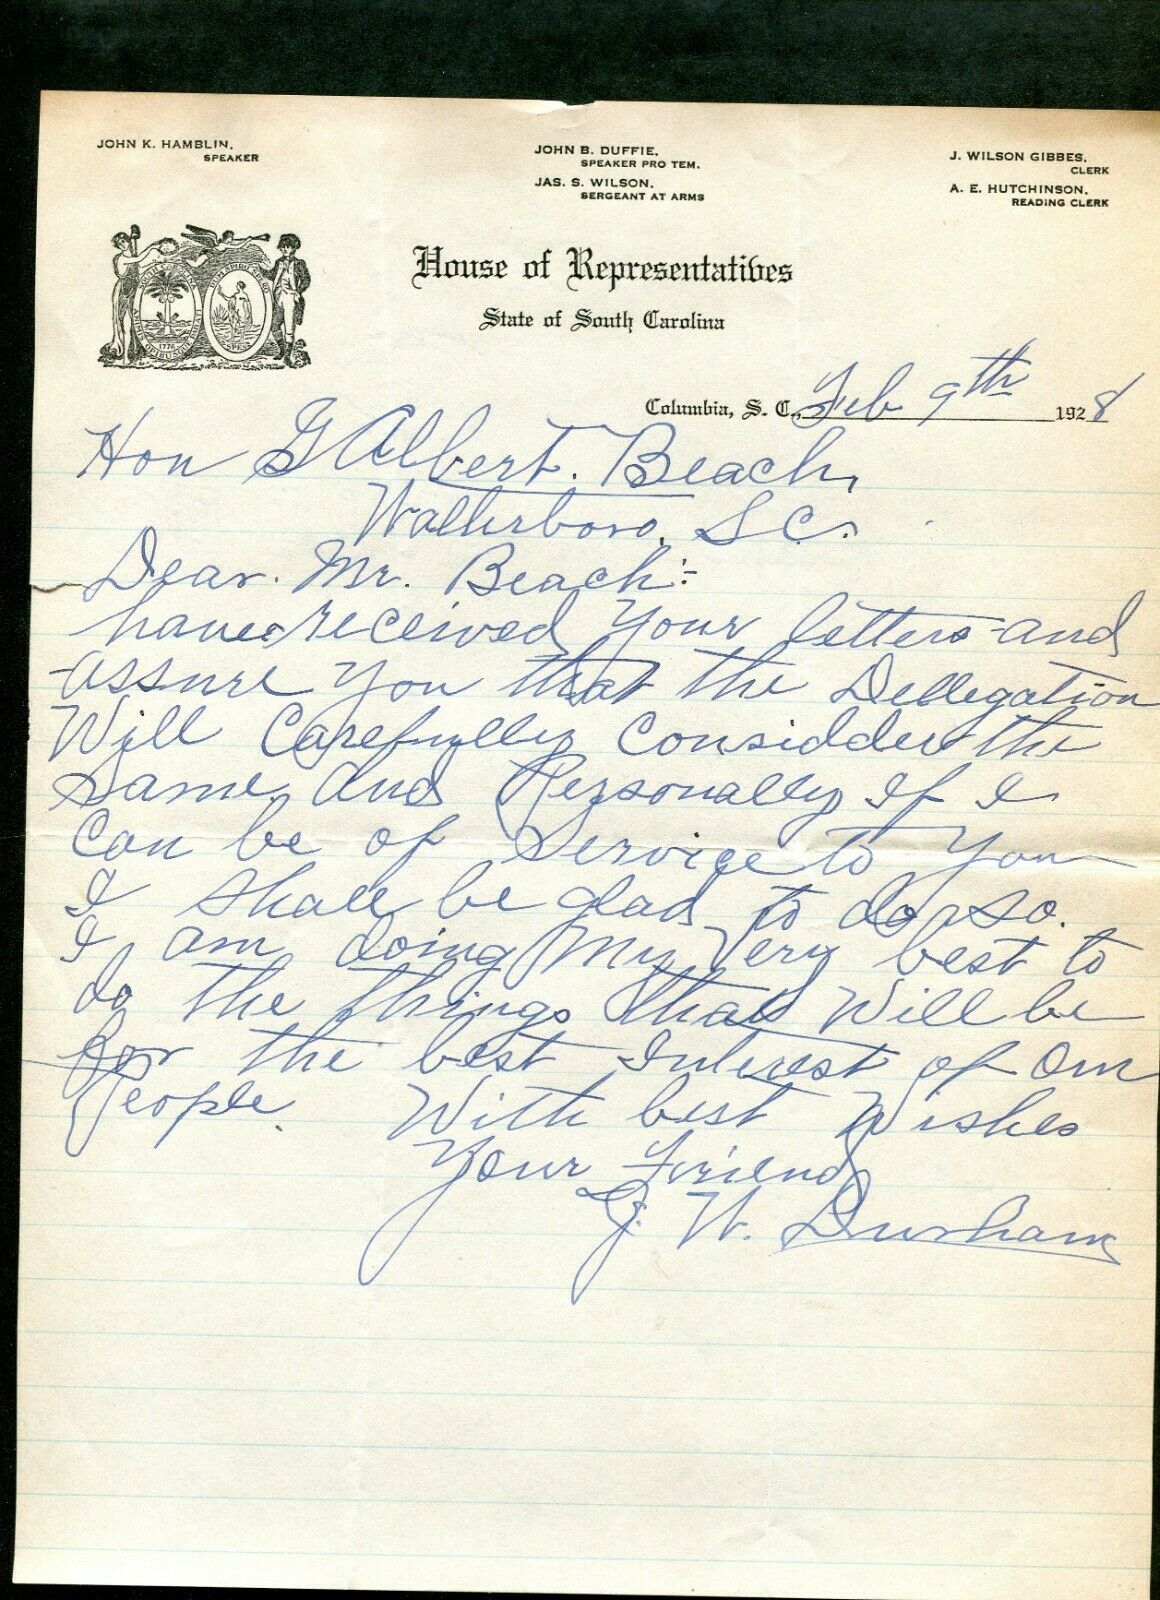 JOHN K. HAMBLIN,
SPEAKER
JOHN B. DUFFIE,
SPEAKER PRO TEM.
JAS. S. WILSON,
SERGEANT AT ARMS
J. WILSON GIBBES,
CLERK
A. E. HUTCHINSON,
READING CLERK
House of Representatives
State of South Carolina
Columbia, S. C., Feb 9th 1928
Hon G Albert. Beach,
Walterboro, S.C.
Dear. Mr. Beach:-
have received Your letters and
assure You that the Dellegation
Will Carefully Considder the
Same, and Personally if I
Can be of Service to You
I Shall be glad to do so.
I am doing My Very best to
do the things that Will be
for the best Interest of Our
People. With best Wishes
Your Friend
J. W. Durham